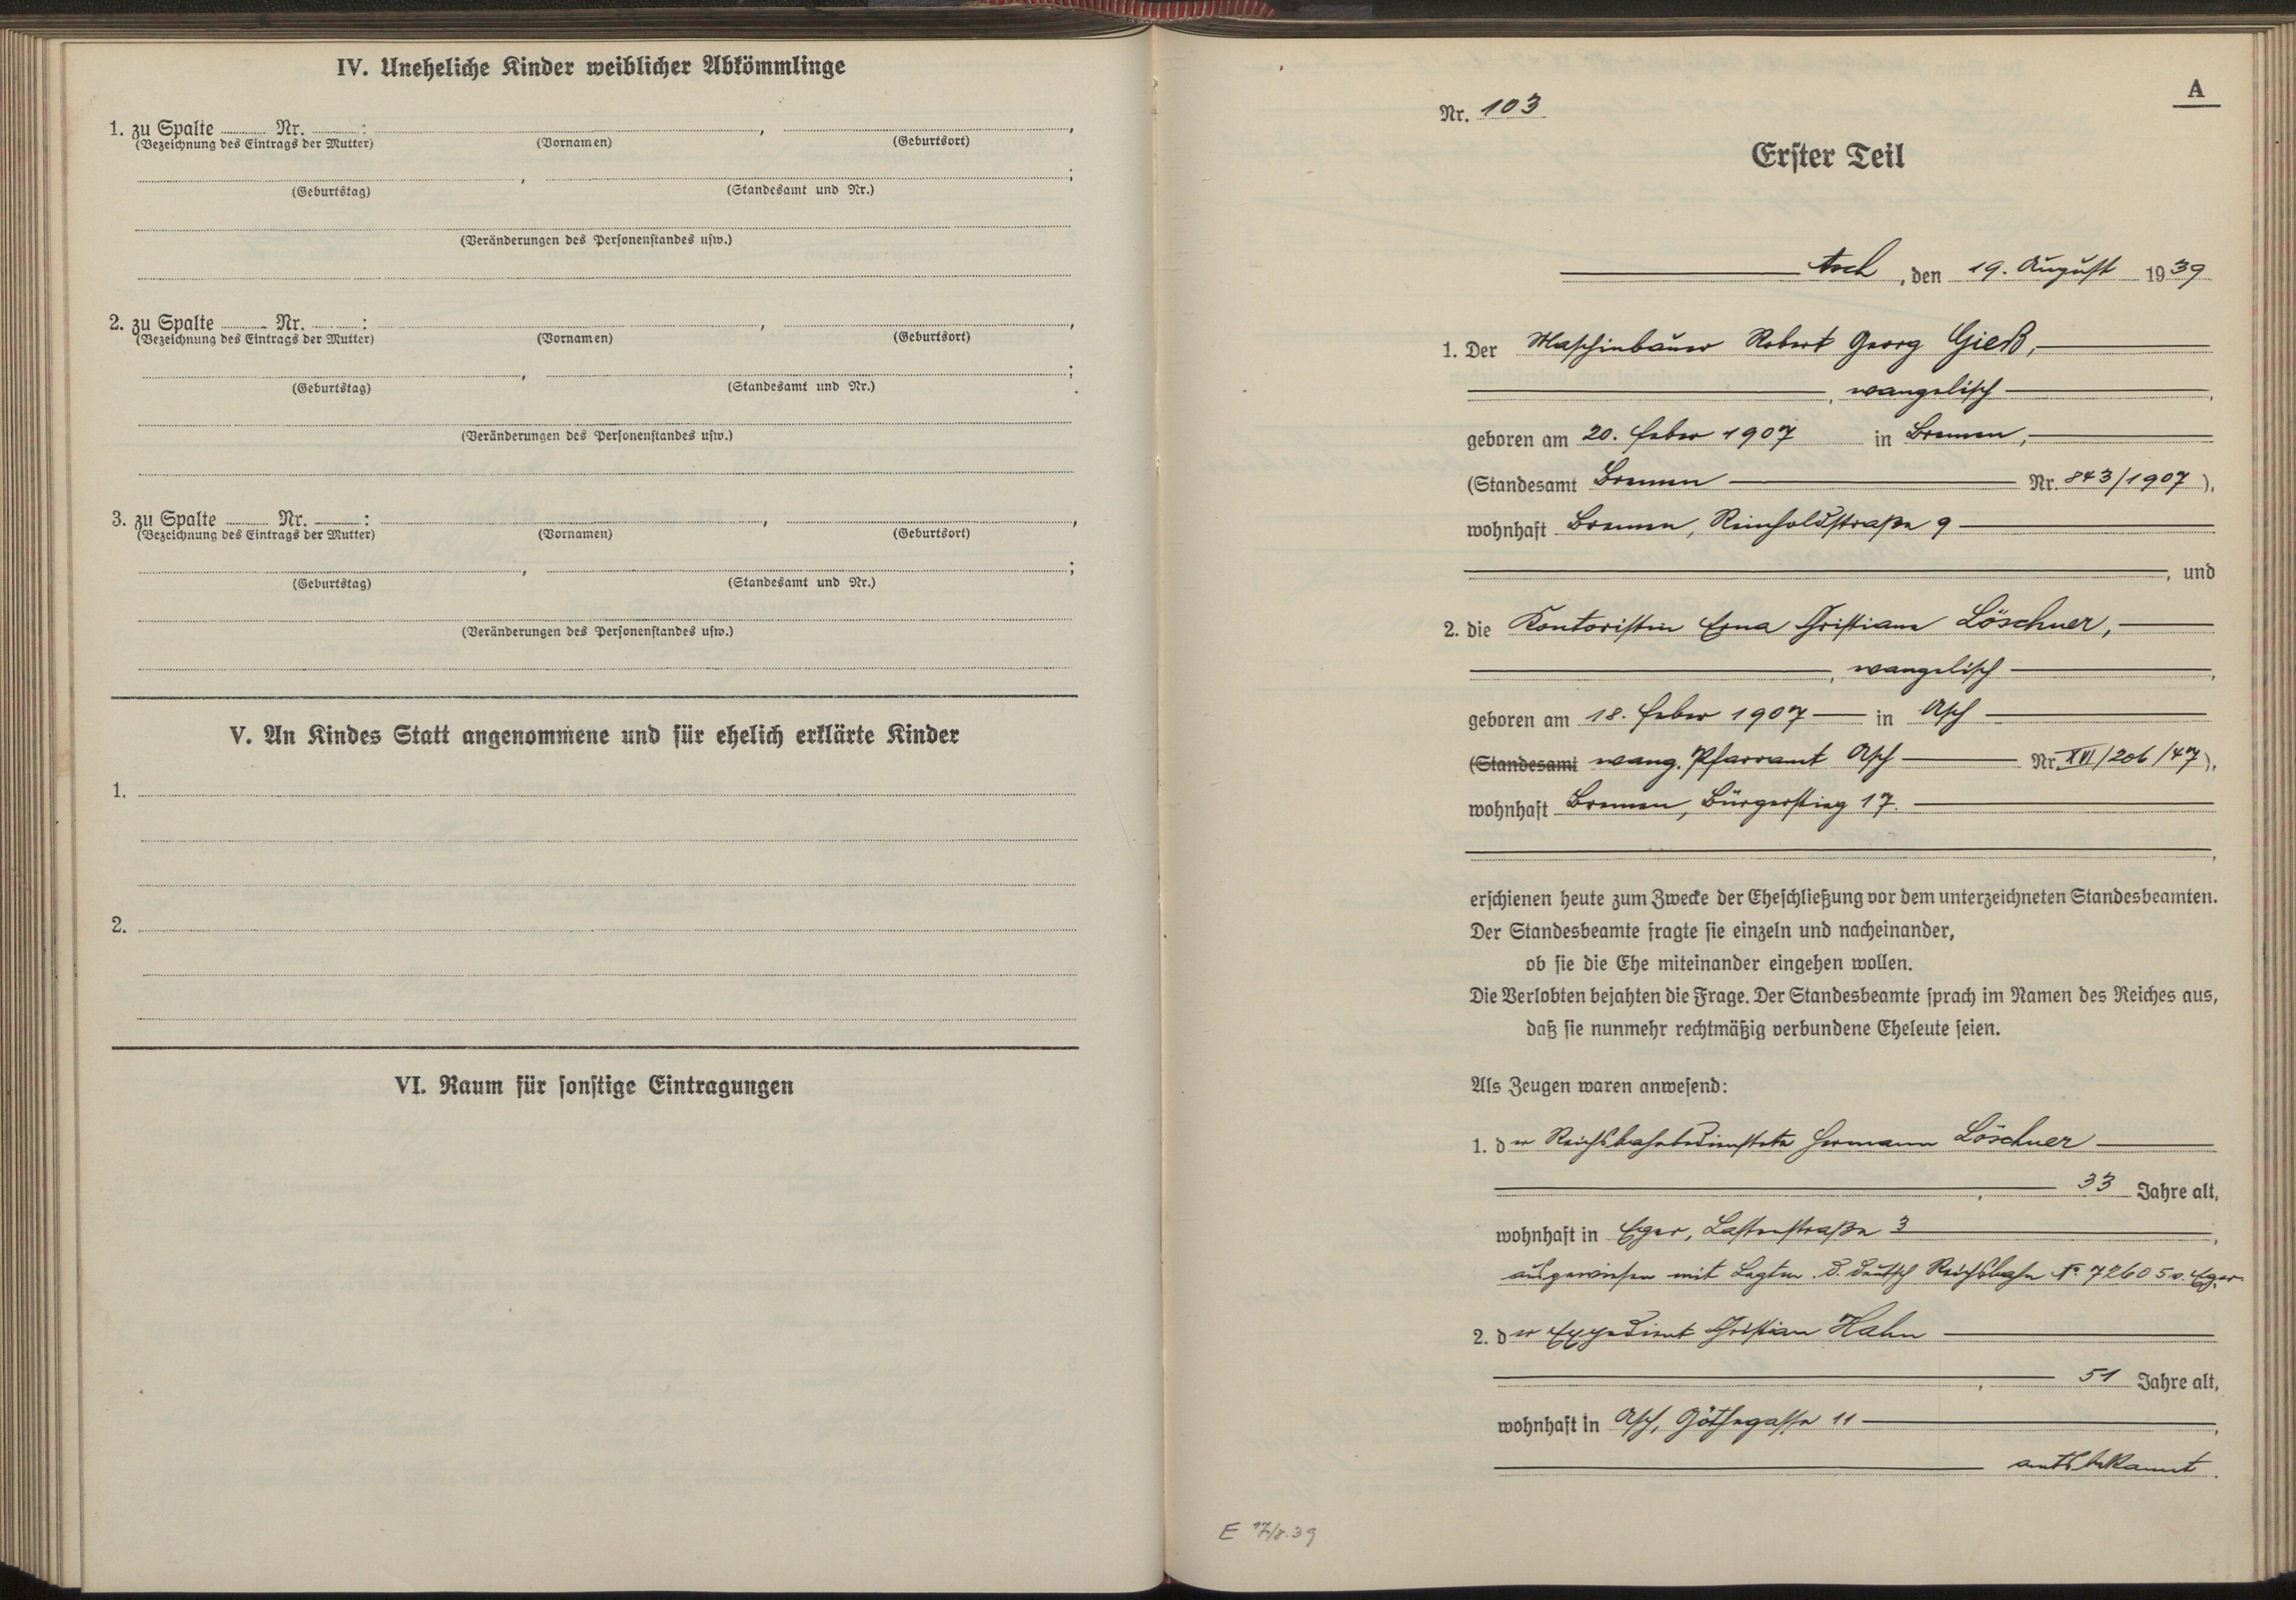 IV. Uneheliche Kinder weiblicher Abkömmlinge
1. zu Spalte ........ Nr. ........ : , ,
(Bezeichnung des Eintrags der Mutter) (Vornamen) (Geburtsort)
, ;
(Geburtstag) (Standesamt und Nr.)
(Veränderungen des Personenstandes usw.)
2. zu Spalte ........ Nr. ........ : , ,
(Bezeichnung des Eintrags der Mutter) (Vornamen) (Geburtsort)
, ;
(Geburtstag) (Standesamt und Nr.)
(Veränderungen des Personenstandes usw.)
3. zu Spalte ........ Nr. ........ : , ,
(Bezeichnung des Eintrags der Mutter) (Vornamen) (Geburtsort)
, ;
(Geburtstag) (Standesamt und Nr.)
(Veränderungen des Personenstandes usw.)
V. An Kindes Statt angenommene und für ehelich erklärte Kinder
1.
2.
VI. Raum für sonstige Eintragungen
A
Nr. 103
Erster Teil
Asch, den 19. August 1939
1. Der Maschinbauer Robert Georg Gieß,
, evangelisch ,
geboren am 20. Feber 1907 in Bremen,
(Standesamt Bremen Nr. 843/1907),
wohnhaft Bremen, Reinholdstraße 9
, und
2. die Kontoristin Erna Christiane Löschner,
, evangelisch ,
geboren am 18. Feber 1907 in Asch
(Standesamt evang. Pfarramt Asch Nr. XVI/206/47),
wohnhaft Bremen, Bürgerstieg 17.
,
erschienen heute zum Zwecke der Eheschließung vor dem unterzeichneten Standesbeamten.
Der Standesbeamte fragte sie einzeln und nacheinander,
ob sie die Ehe miteinander eingehen wollen.
Die Verlobten bejahten die Frage. Der Standesbeamte sprach im Namen des Reiches aus,
daß sie nunmehr rechtmäßig verbundene Eheleute seien.
Als Zeugen waren anwesend:
1. der Reichsbahnbedienstete Hermann Löschner
, 33 Jahre alt,
wohnhaft in Eger, Lastenstraße 3 ,
ausgewiesen mit Legtm. d. deutsch Reichsbahn No 72605 v. Eger.
2. der Expedient Christian Hahn
, 51 Jahre alt,
wohnhaft in Asch, Göthegasse 11 ,
amtsbekannt.
E 17/8.39